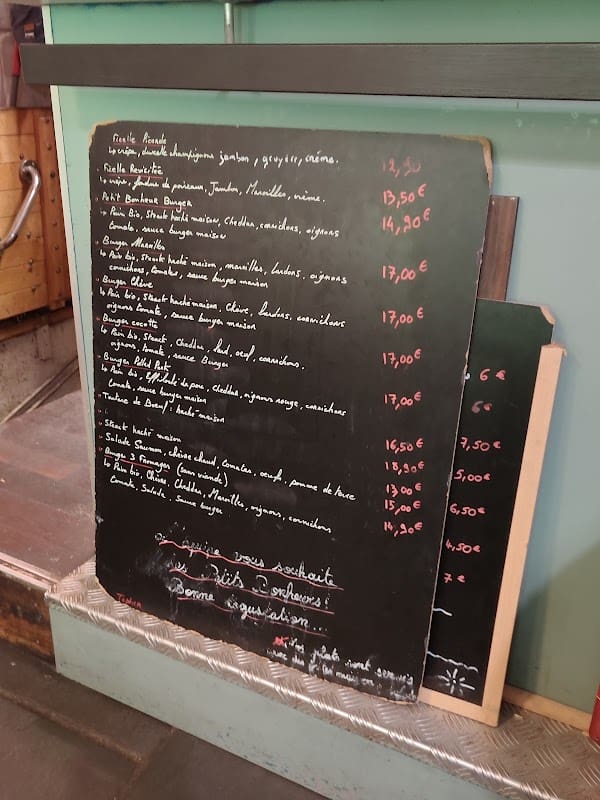 Ficelle Picarde 12,90
↳ crêpe, duxelle champignons jambon, gruyère, crème.
Ficelle Revisitée 13,50 €
↳ crêpe, fondue de poireaux, Jambon, Maroilles, crème.
Petit Bonheur Burger 14,90 €
↳ Pain Bio, Steack haché maison, Cheddar, cornichons, oignons
tomate, sauce burger maison
Burger Maroilles 17,00 €
↳ Pain bio, steack haché maison, maroilles, lardons, oignons
cornichons, tomates, sauce burger maison
Burger Chèvre 17,00 €
↳ Pain bio, Steack haché maison, Chèvre, lardons, cornichons
oignons tomate, sauce burger maison
Burger cocotte 17,00 €
↳ Pain bio, Steack, Cheddar, lard, oeuf, cornichons.
oignons, tomate, sauce Burger
Burger Pulled Pork 17,00 €
↳ Pain bio, Effiloché de porc, cheddar, oignons rouge, cornichons
tomate, sauce burger maison
Tartare de Boeuf haché maison 16,50 €
18,90 €
Steack haché maison 13,00 €
Salade Saumon, chèvre chaud, tomates, oeufs, pomme de terre 15,00 €
Burger 3 Fromages (sans viande) 14,90 €
↳ Pain bio, Chèvre, Cheddar, Maroilles, oignons, cornichons
tomate, Salade, sauce burger
L'équipe vous souhaite
des Petits Bonheurs!
Bonne dégustation...
plats sont servis
maison
6 €
6 €
7,50 €
5,00 €
6,50 €
4,50 €
7 €